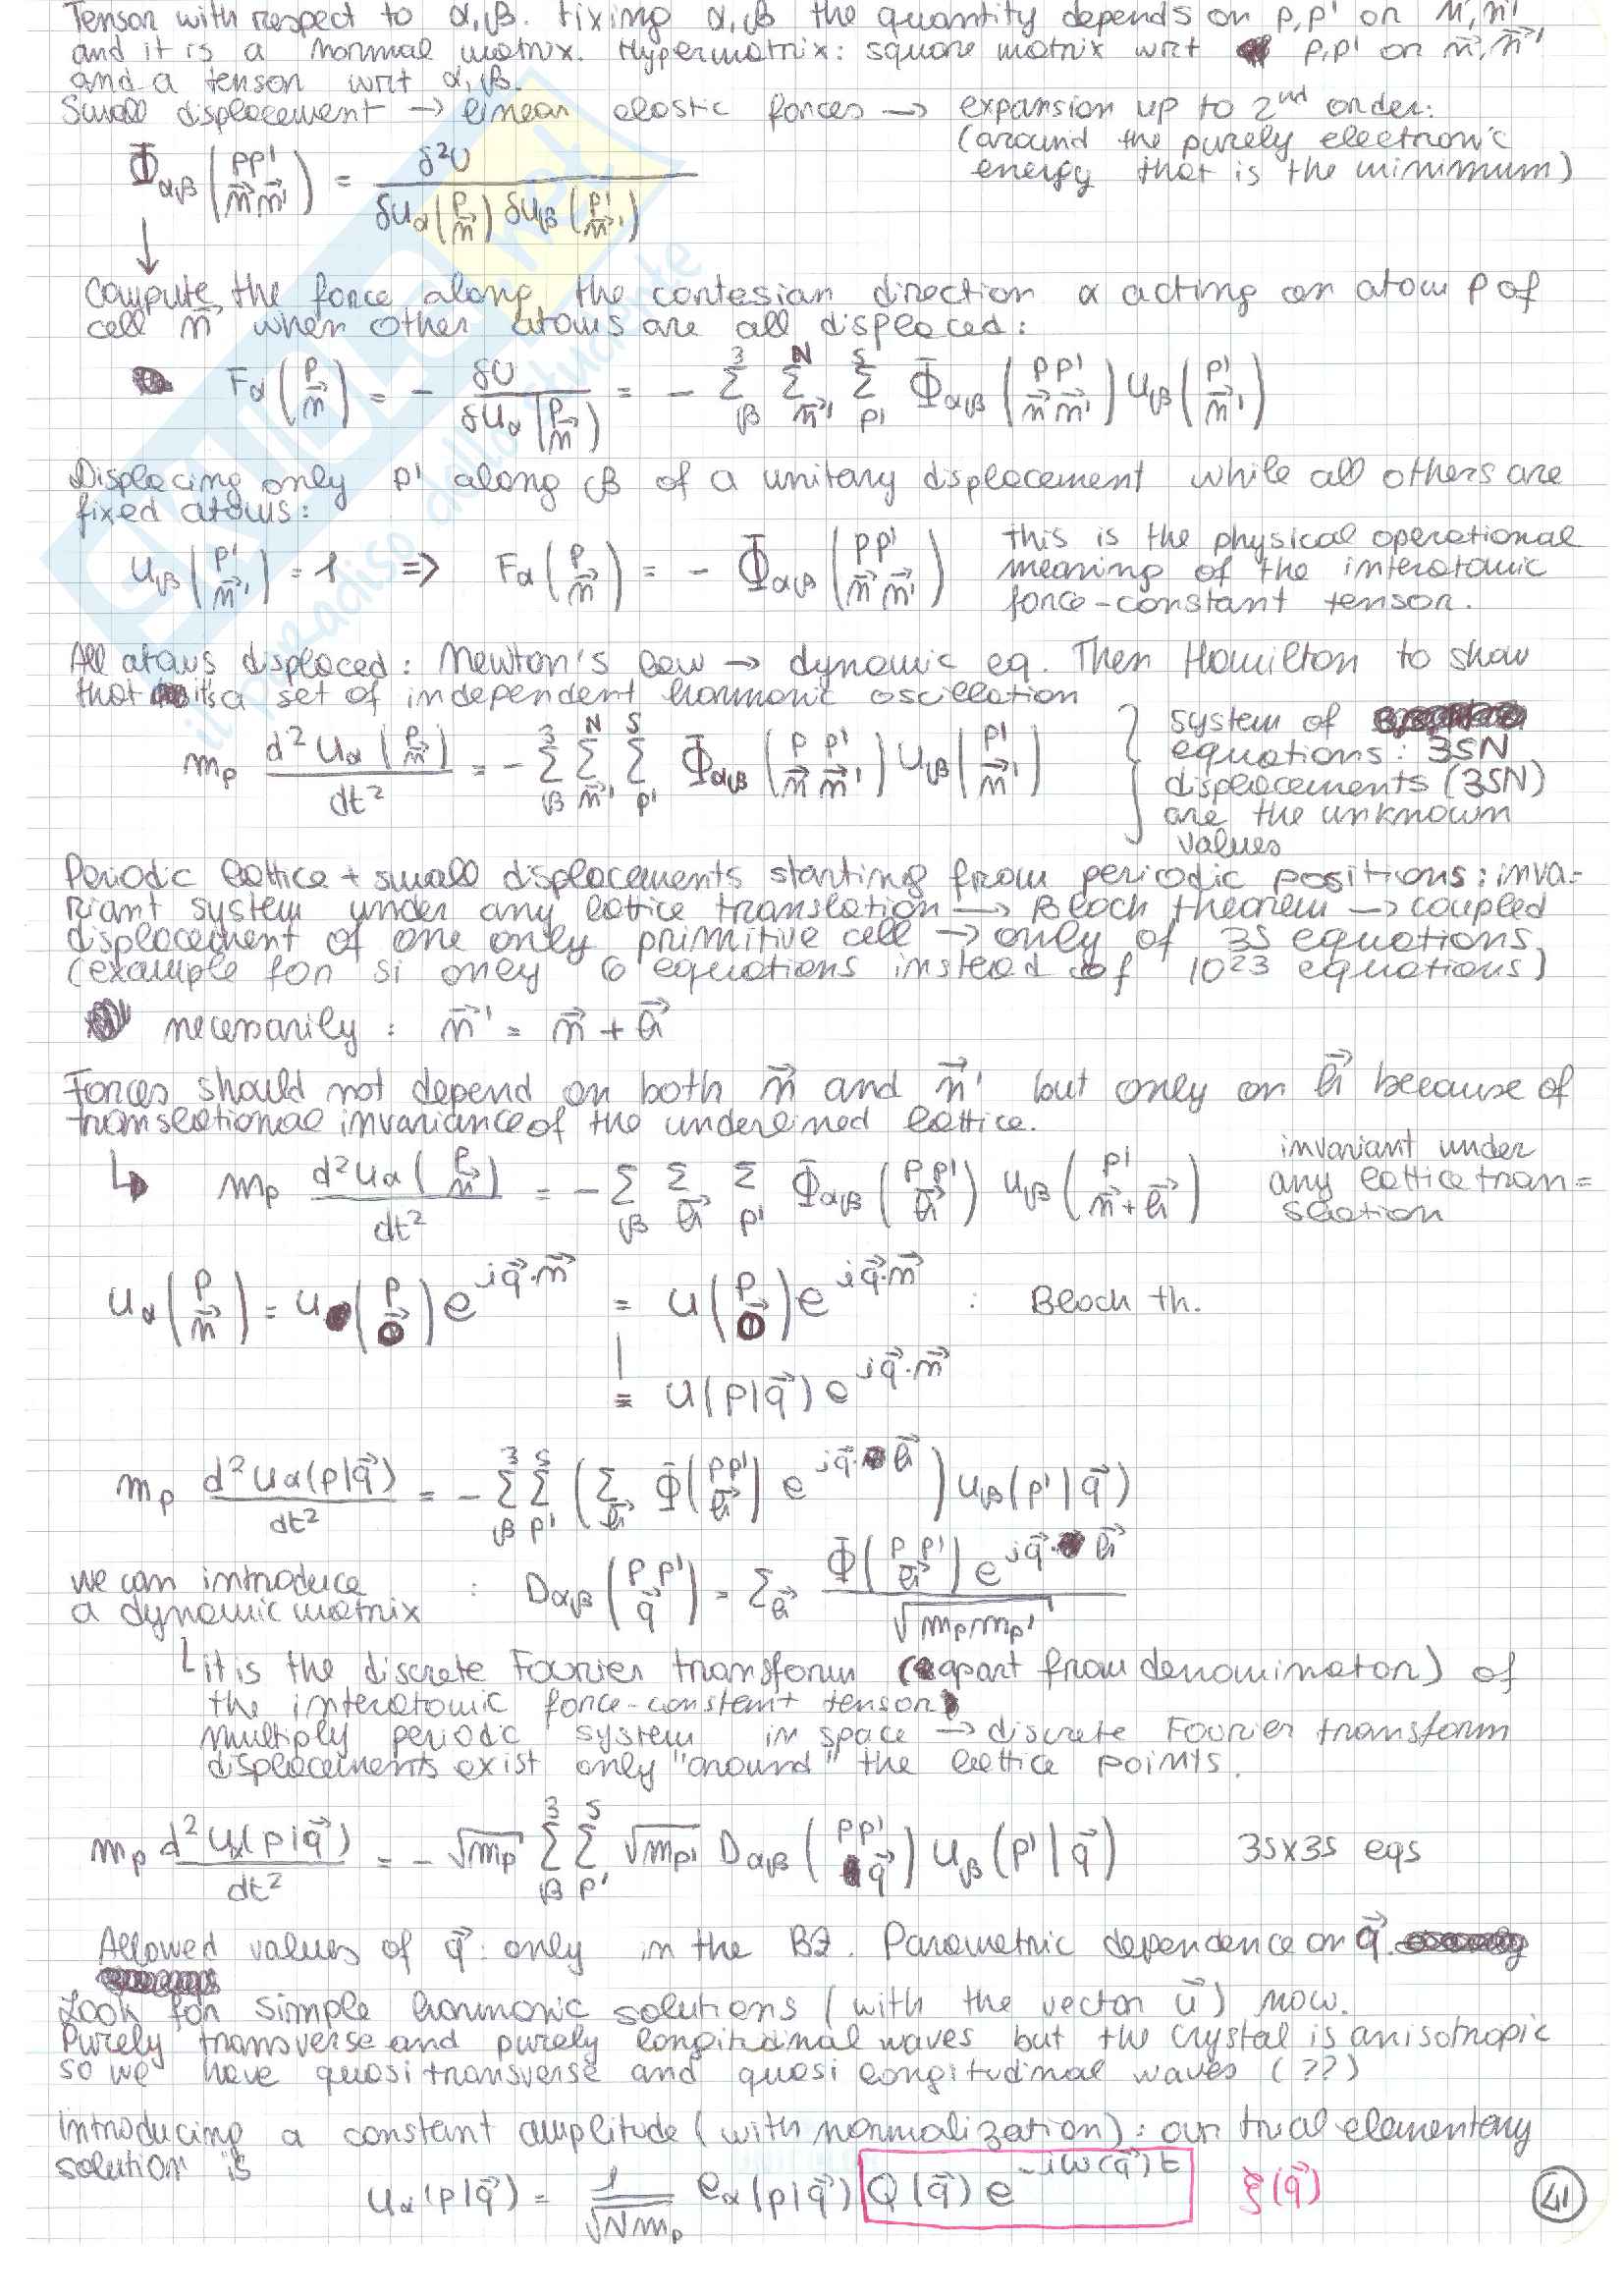 Tensor with respect to α,β. Fixing α,β the quantity depends on p,p' or n,n'
and it is a normal matrix. Hypermatrix: square matrix wrt p,p' or n⃗,n⃗'
and a tensor wrt α,β.
Small displacement → linear elastic forces → expansion up to 2nd order:
(around the purely electronic
energy that is the minimum)
Φ_αβ (pp' / n⃗n⃗') = δ²U / δu_α(p / n⃗) δu_β(p' / n⃗')
↓
Compute the force along the cartesian direction α acting on atom p of
cell n⃗ when other atoms are all displaced:
F_α (p / n⃗) = - δU / δu_α(p / n⃗) = - Σ_β^3 Σ_n⃗'^N Σ_p'^S Φ_αβ (pp' / n⃗n⃗') u_β (p' / n⃗')
Displacing only p' along β of a unitary displacement while all others are
fixed atoms:
u_β (p' / n⃗') = 1 ⇒ F_α (p / n⃗) = - Φ_αβ (pp' / n⃗n⃗') this is the physical operational
meaning of the interatomic
force-constant tensor.
All atoms displaced: Newton's law → dynamic eq. Then Hamilton to show
that it's a set of independent harmonic oscillation
m_p d²u_α(p / n⃗) / dt² = - Σ_β^3 Σ_n⃗'^N Σ_p'^S Φ_αβ (p p' / n⃗ n⃗') u_β (p' / n⃗') } system of
equations: 3SN
displacements (3SN)
are the unknown
values
Periodic lattice + small displacements starting from periodic positions: inva=
riant system under any lattice translation → Bloch theorem → coupled
displacement of one only primitive cell → only of 3S equations.
(example for Si only 6 equations instead of 10²³ equations)
necessarily: n⃗' = n⃗ + h⃗
Forces should not depend on both n⃗ and n⃗' but only on h⃗ because of
translational invariance of the underlined lattice.
↳ m_p d²u_α(p / n⃗) / dt² = - Σ_β Σ_h⃗ Σ_p' Φ_αβ (pp' / h⃗) u_β (p' / n⃗+h⃗) invariant under
any lattice tran=
slation
u_α (p / n⃗) = u (p / 0) e^{iq⃗·n⃗} = u (p / 0) e^{iq⃗·n⃗} : Bloch th.
= u(p|q⃗) e^{iq⃗·n⃗}
m_p d²u_α(p|q⃗) / dt² = - Σ_β^3 Σ_p'^S (Σ_h⃗ Φ(pp' / h⃗) e^{iq⃗·h⃗}) u_β(p'|q⃗)
we can introduce
a dynamic matrix : D_αβ (p p' / q⃗) = Σ_h⃗ Φ(p p' / h⃗) e^{iq⃗·h⃗} / √m_p m_p'
└ it is the discrete Fourier transform (apart from denominator) of
the interatomic force-constant tensor
multiply periodic system in space → discrete Fourier transform
displacements exist only "around" the lattice points.
m_p d²u_α(p|q⃗) / dt² = - √m_p Σ_β^3 Σ_p'^S √m_p' D_αβ (pp' / q⃗) u_β (p'|q⃗) 3S×3S eqs
Allowed values of q⃗: only in the BZ. Parametric dependence on q⃗.
Look for simple harmonic solutions (with the vector u⃗) now.
Purely transverse and purely longitudinal waves but the crystal is anisotropic
so we have quasi transverse and quasi longitudinal waves (??)
Introducing a constant amplitude (with normalization): our trial elementary
solution is
u_α(p|q⃗) = 1/√N m_p e_α(p|q⃗) Q(q⃗) e^{-iω(q⃗)t} ξ(q⃗)
41